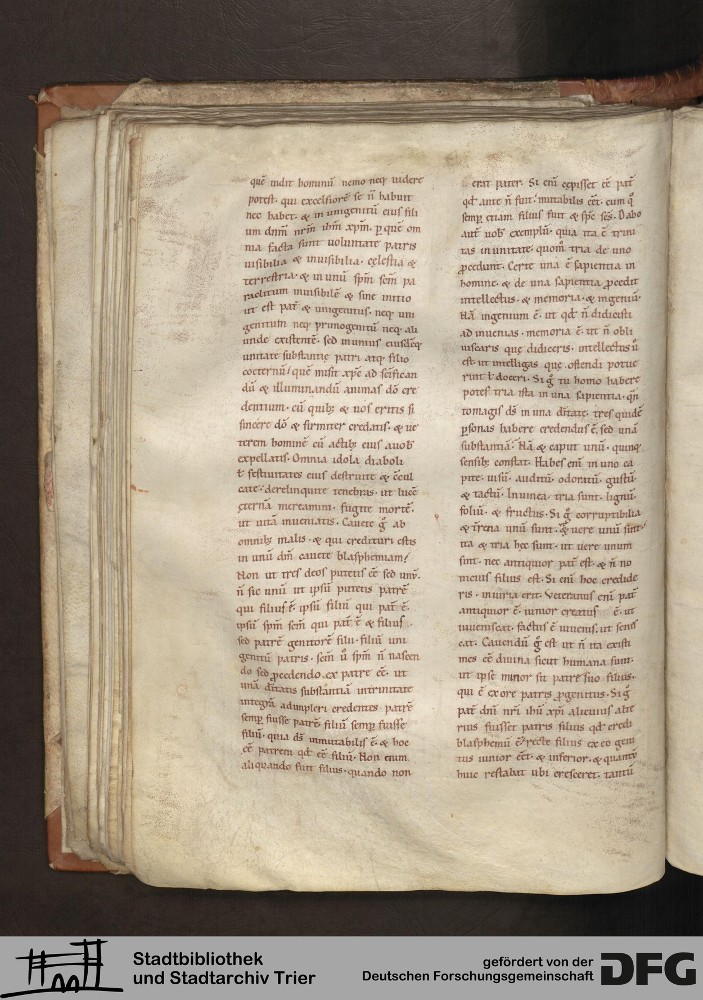 quē uidit hominū nemo neq; uidere
potest. qui excelsiorē se ñ habuit
nec habet. & in unigenitū eius fili
um dnm̄ nr̄m ihm̄ xpm̄. p quē om
nia facta sunt uoluntate patris
uisibilia & inuisibilia. cęlestia &
terrestria. & in unū spm̄ scm̄ pa
raclitum inuisibilē & sine initio
ut est pat̄ & unigenitus. neq; uni
genitum neq; primogenitū neq; ali
unde existentē. sed in unius eiusdēq;
unitate substantię patri atq; filio
coeternū. quē misit xpc̄ ad scīfican
dū & illuminandū animas dō cre
dentium. cū quib; & uos eritis si
sincere dō & firmiter credatis. & ue
terem hominē cū actib; eius a uob̄
expellatis. Omnia idola diaboli
ł festiuitates eius destruite & ccul
cate. derelinquite tenebras. ut lucē
ęternā mereamini. fugite mortē.
ut uitā inueniatis. Cauete g̊ ab
omnib; malis. & qui credituri estis
in unū dm̄ cauete blasphemiam.
Non ut tres deos putetis cē sed unū.
ñ sic unū ut ipsū putetis patrē
qui filius ē. ipsū filiū qui pat̄ ē.
ipsū spm̄ scm̄ qui pat̄ ē & filius.
sed patrē genitorē filii. filiū uni
genitū patris. scm̄ ů spm̄ ñ nascen
do sed pcedendo ex patre cē. ut
unā dītatis substantiā in trinitate
integrā adimpleri credentes patrē
semp fuisse patrē. filiū semp fuisse
filiū. quia ds̄ inmutabilis ē. & hoc
cē patrem qd̄ cē filiū. Non enim
aliquando fuit filius. quando non
erat pater. Si enī cepisset cē pat̄
qd̄ ante ñ fuit. mutabilis cēt. cum quo
semp etiam filius fuit & spc̄ scs̄. Dabo
autē uob̄ exemplū. quia ita ē trini
tas in unitate. quom̊ tria de uno
pcedunt. Certe una ē sapientia in
homine. & de una sapientia pcedit
intellectus. & memoria. & ingeniū.
Nā ingenium ē. ut qd̄ ñ didicisti
ad inuenias. memoria ē. ut ñ obli
uiscaris quę didiceris. intellectus ů
est. ut intelligas quę ostendi potue
rint ł doceri. Si g̊ tu homo habere
potes tria ista in una sapientia. qn̄
to magis ds̄ in una dītate. tres quidē
psonas habere credendus ē. sed unā
substantiā. Nā & caput unū. quinq;
sensib; constat. Habes enī in uno ca
pite. uisū. auditū. odoratū. gustū
& tactū. In uinea tria sunt. lignū.
foliū. & fructus. Si g̊ corruptibilia
& trena unū sunt. & uere unū sunt
ita & tria hęc sunt. ut uere unum
sint. nec antiquior pat̄ est. & ñ no
uicius filius est. Si enī hoc credide
ris. iniuria erit. Veteranus enī pat̄
antiquior ē. iunior creatus ē. ut
iuueniscat. factus ē iuuenis. ut senes
cat. Cauendū g̊ est ut ñ ita existi
mes cē diuina sicut humana sunt.
ut ipse minor sit patre suo filius.
qui ē ex ore patris pgenitus. Si g̊
pat̄ dnī nrī ihū xpī alicuius alte
rius fuisset patris filius qd̄ credi
blasphemū ē. recte filius ex eo geni
tus iunior cēt. & inferior. & quantū
huic restabat ubi cresceret. tantū
Stadtbibliothek
und Stadtarchiv Trier
gefördert von der
Deutschen Forschungsgemeinschaft
DFG